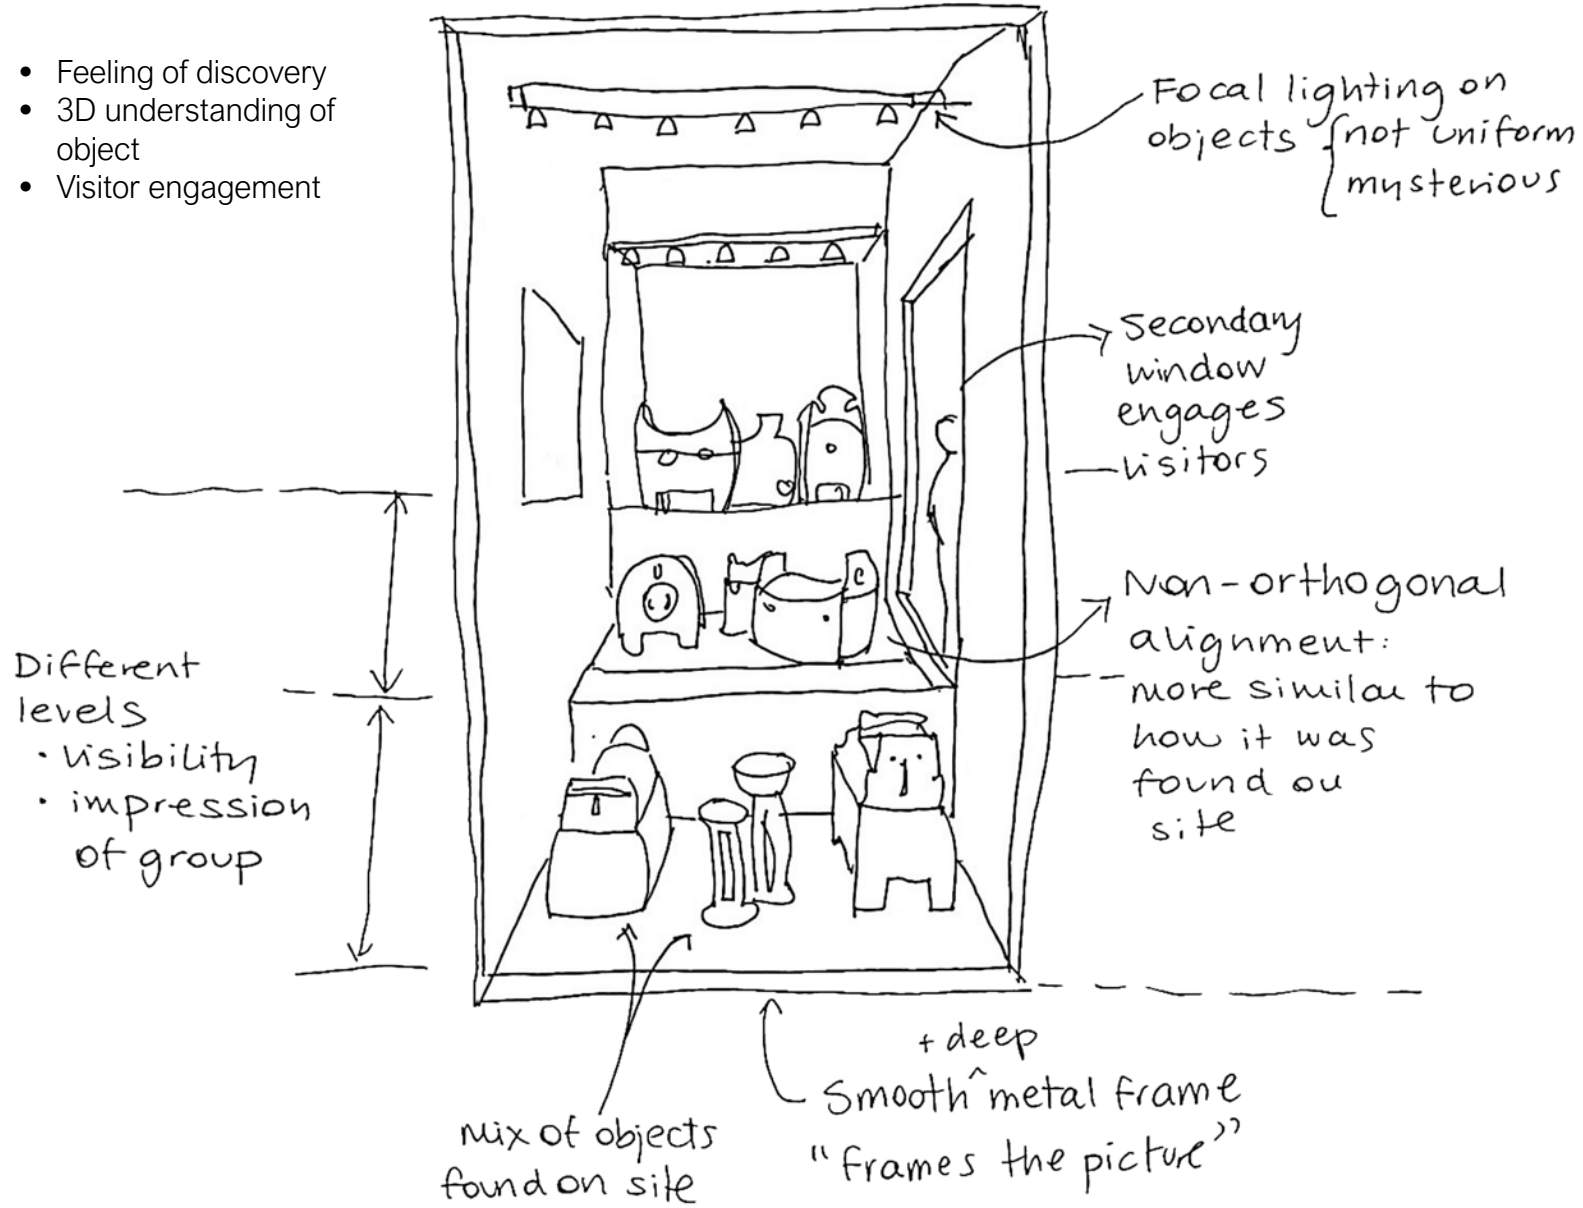 • Feeling of discovery
• 3D understanding of
object
• Visitor engagement
Focal lighting on
objects { not uniform
mysterious
Secondary
window
engages
visitors
Non-orthogonal
alignment:
more similar to
how it was
found on
site
Different
levels
• visibility
• impression
of group
Mix of objects
found on site
+ deep
Smooth ^ metal frame
"frames the picture"